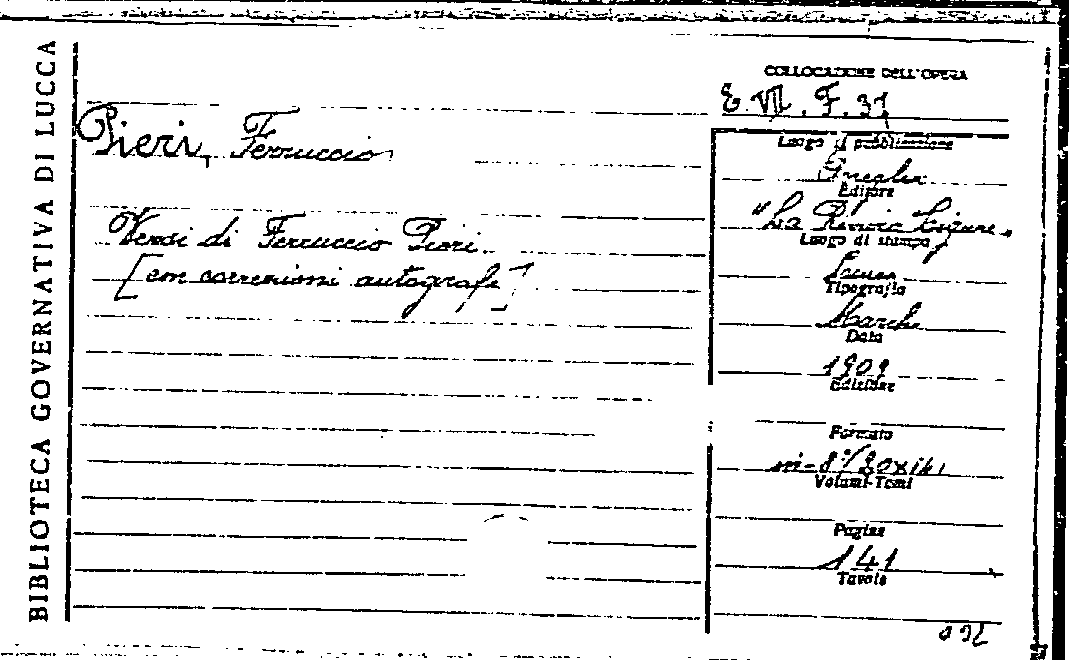 BIBLIOTECA GOVERNATIVA DI LUCCA
COLLOCAZIONE DELL'OPERA
E. VII. F. 37
Pieri, Ferruccio
Versi di Ferruccio Pieri.
[con correzioni autografe]
Luogo di pubblicazione
Oneglia
Editore
"La Riviera Ligure"
Luogo di stampa
Lucca
Tipografia
Marchi
Data
1909
Edizione
Formato
in-8°/20x14
Volumi-Tomi
Pagine
141
Tavole